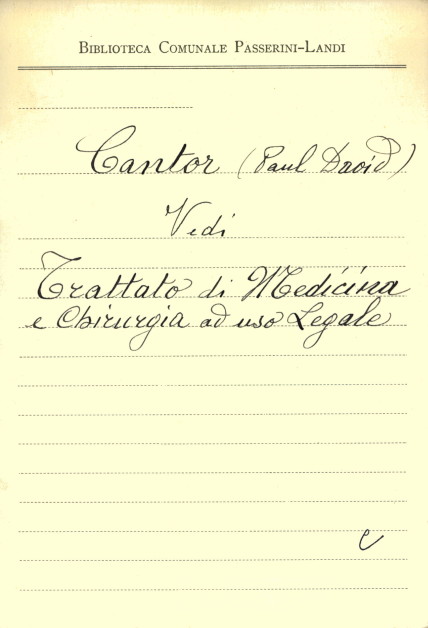 BIBLIOTECA COMUNALE PASSERINI-LANDI
Cantor (Paul David)
Vedi
Trattato di Medicina
e Chirurgia ad uso Legale